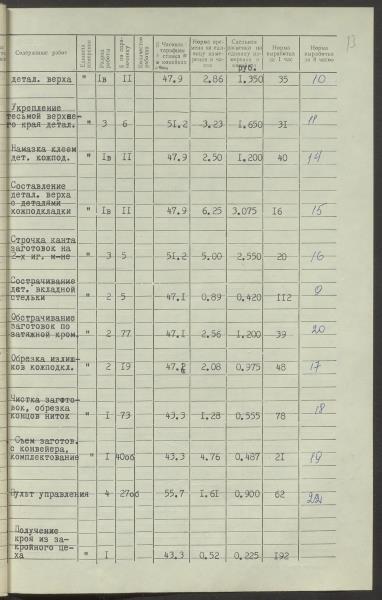 13
Содержание работ
Единица измерения
Разряд работы
§ по справочнику
Норма выработки за 1 час
Норма выработки за 8 часов
руб.
детал. верха " Iв II 47.9 2.86 I.350 35 10
Укрепление
тесьмой верхне-
го края детал. " 3 6 5I.2 3.23 I.650 3I 11
Намазка клеем
дет. кожпод. " Iв II 47.9 2.50 I.200 40 14
Составление
детал. верха
с деталями
кожподкладки " Iв II 47.9 6.25 3.075 I6 15
Строчка канта
заготовок на
2-х иг. м-не " 3 5 5I.2 5.00 2.550 20 16
Сострачивание
дет. вкладной
стельки " 2 5 47.I 0.89 0.420 II2 9
Обстрачивание
заготовок по
затяжной кром. " 2 77 47.I 2.56 I.200 39 20
Обрезка излиш-
ков кожподкл. " 2 I9 2.08 0.975 48 17
Чистка загото-
вок, обрезка
концов ниток " I 73 43.3 I.28 0.555 78 18
Съем заготов.
с конвейера,
комплектование " I 40об 43.3 4.76 0.487 2I 19
Пульт управления 4 27об 55.7 I.6I 0.900 62 22
Получение
кроя из за-
кройного це-
ха " I 43.3 0.52 0.225 I92